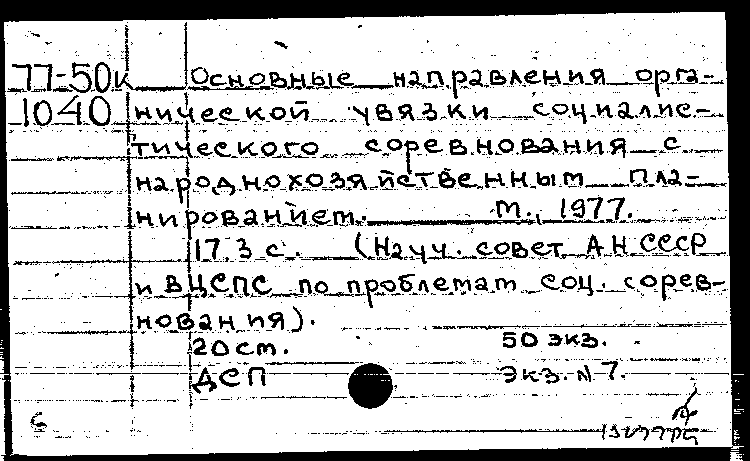 77-50к Основные направления орга-
1040 нической увязки социалис-
тического соревнования с
народнохозяйственным пла-
нированием. М., 1977.
17.3 с. (Науч. совет АН СССР
и ВЦСПС по проблемам соц. сорев-
нования).
20 см. 50 экз.
ДСП Экз. N 7.
6